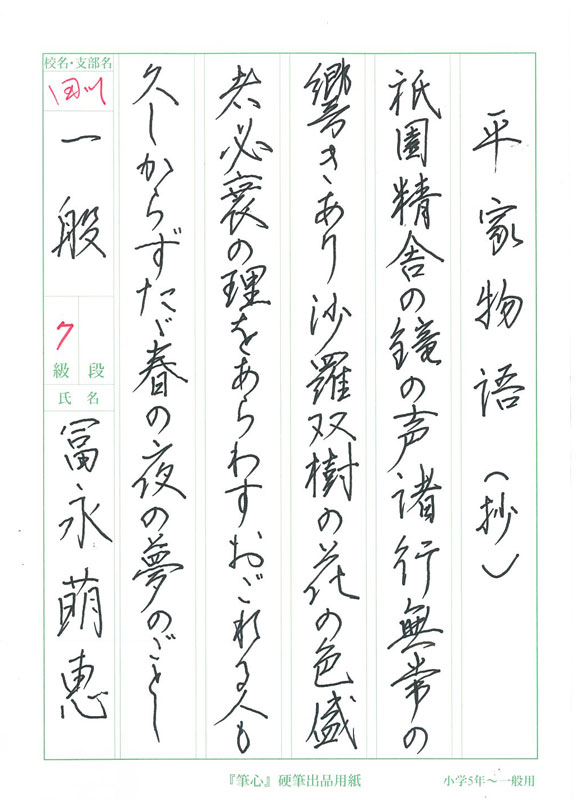 平家物語（抄）
祇園精舎の鐘の声諸行無常の
響きあり沙羅双樹の花の色盛
者必衰の理をあらわすおごれる人も
久しからずたゞ春の夜の夢のごとし
校名・支部名
一般
ク
級 段
氏名
冨永萌恵
『筆心』硬筆出品用紙
小学5年〜一般用